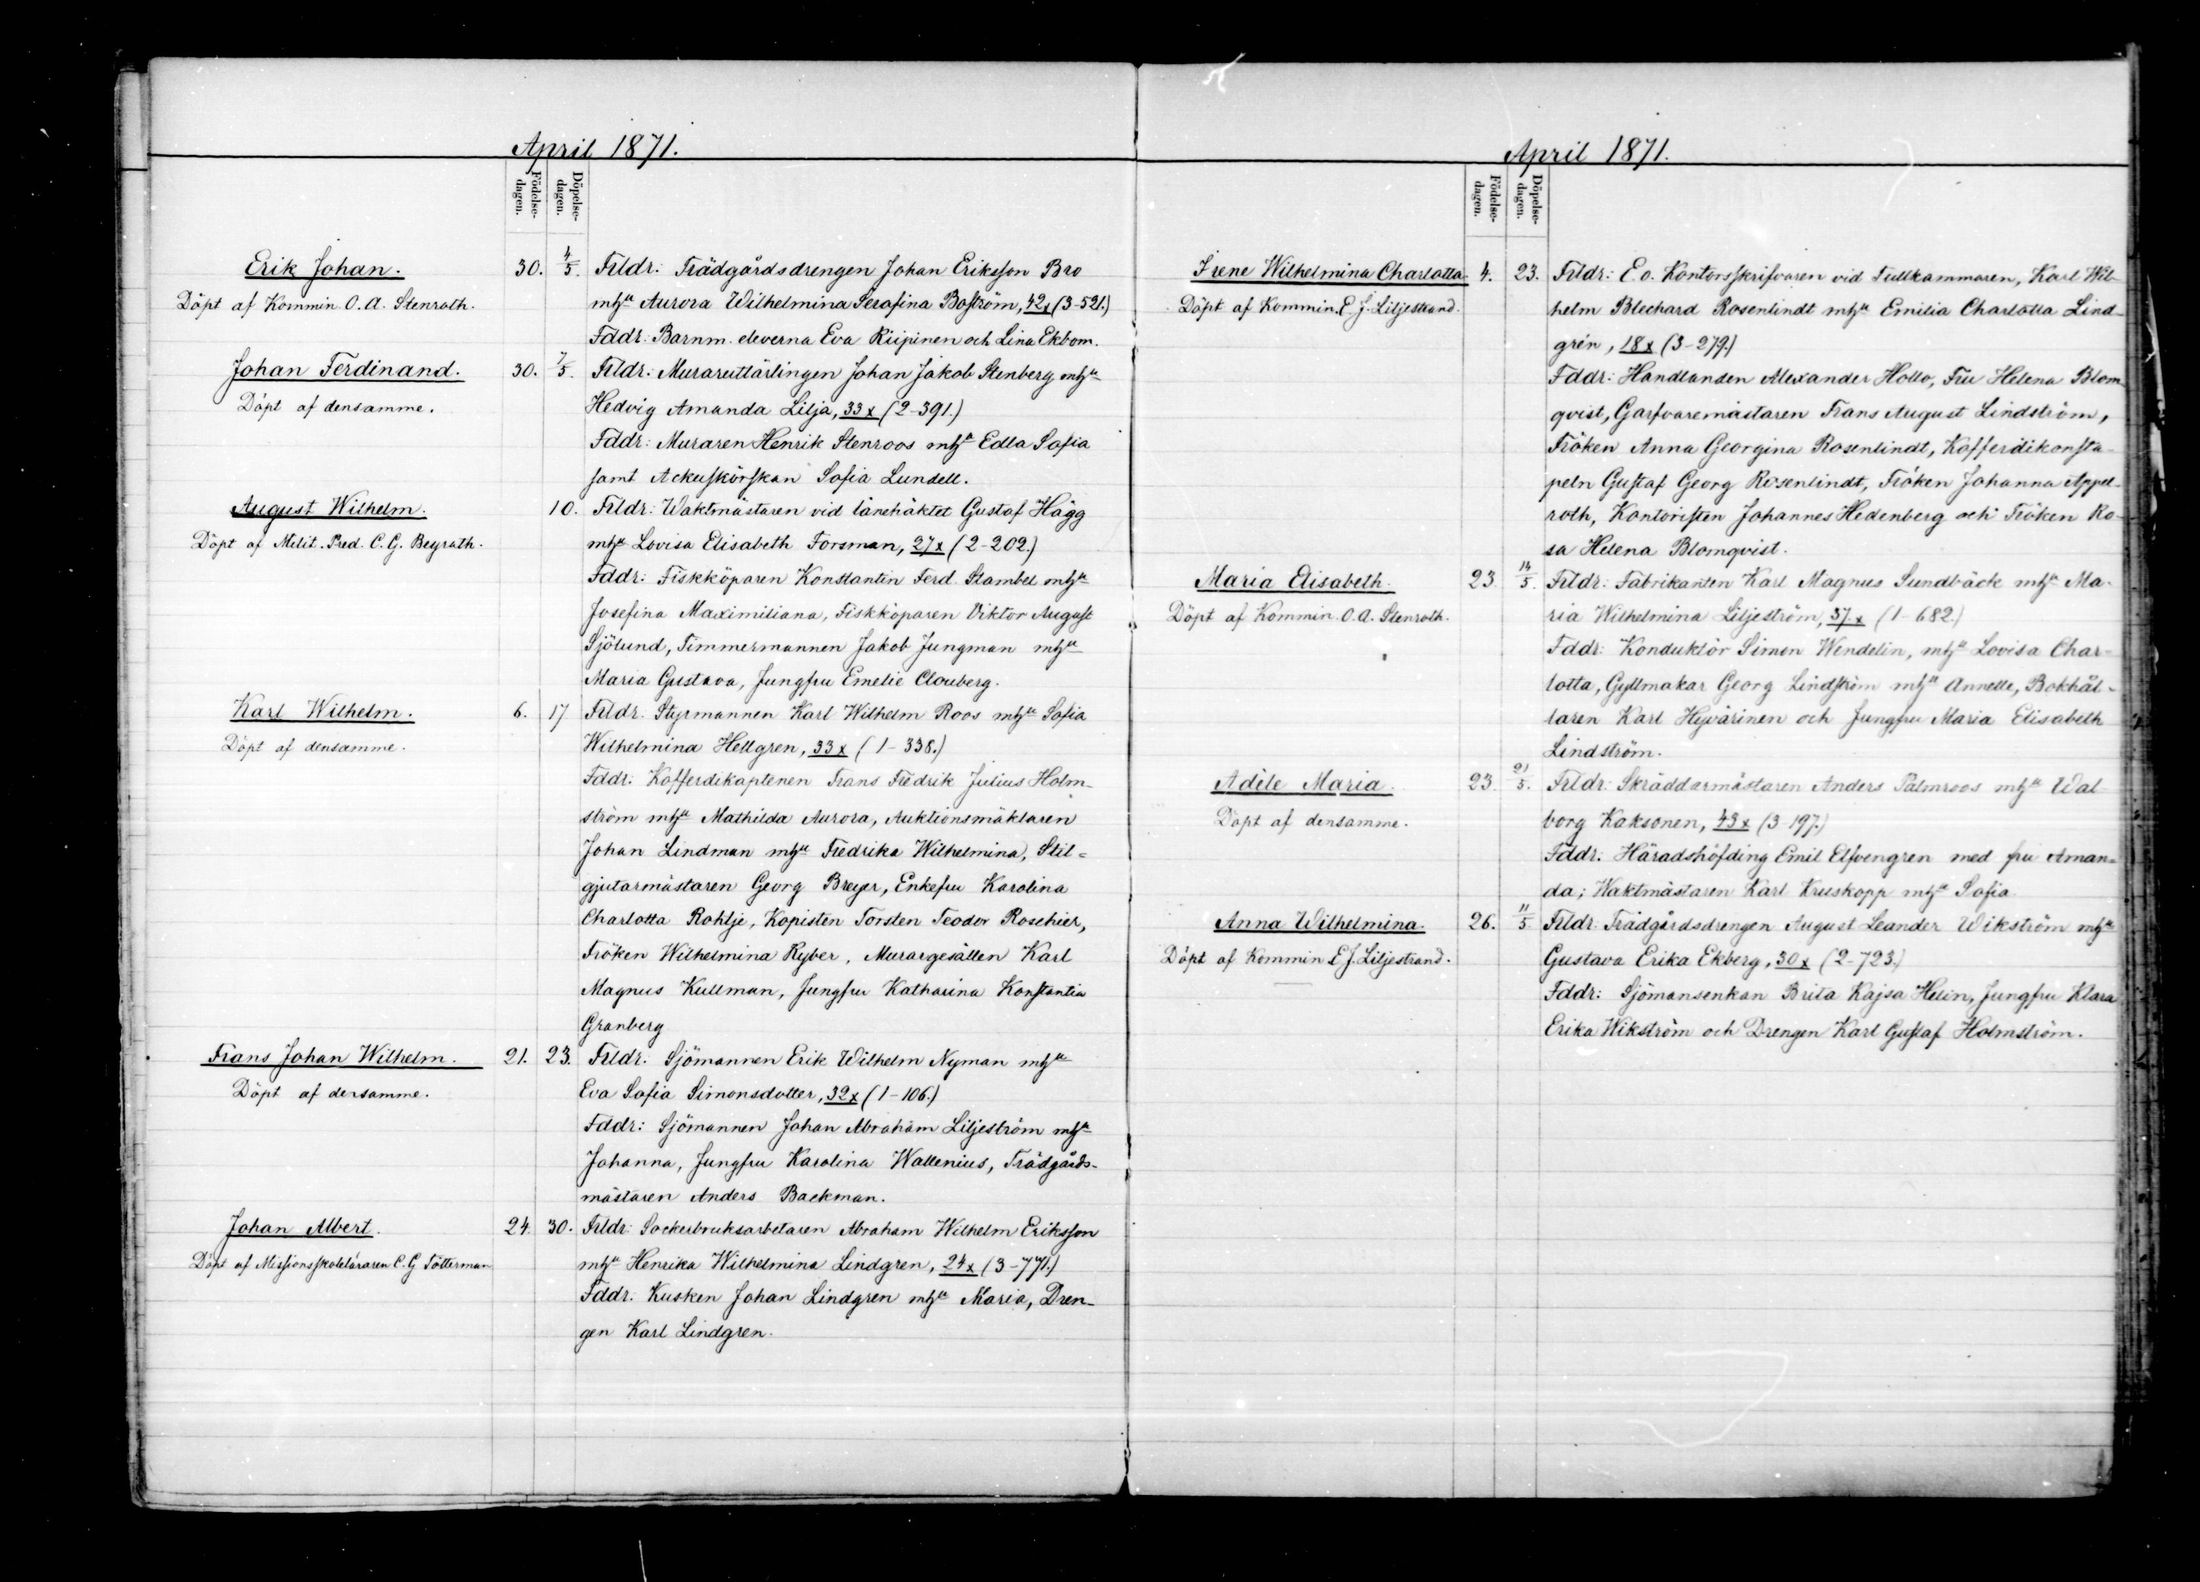 April 1871.
Födelse-dagen.
Döpelse-dagen.
Erik Johan. 30. 4/5. Frldr: Trädgårdsdrengen Johan Eriksson Bro
Döpt af Kommin. O. A. Stenroth. mhu Aurora Wilhelmina Serafina Boström, 42x (3-521.)
Fddr: Barnm. eleverna Eva Riipinen och Lina Ekbom.
Johan Ferdinand. 30. 7/5. Frldr: Murareulärlingen Johan Jakob Stenberg mhu
Döpt af densamme. Hedvig Amanda Lilja, 33x (2-391.)
Fddr: Muraren Henrik Stenroos mhu Edla Sofia
samt Ackuskörskan Sofia Lundell.
August Wilhelm. 10. Frldr: Waktmästaren vid länehäktet Gustaf Hägg
Döpt af Milit. Pred. C. G. Beyrath. mhu Lovisa Elisabeth Forsman, 27x (2-202.)
Fddr: Fiskköparen Konstantin Ferd. Stambet mhu
Josefina Maximiliana, Fiskköparen Viktor August
Sjölund, Timmermannen Jakob Jungman mhu
Maria Gustava, Jungfru Emelie Clouberg.
Karl Wilhelm. 6. 17 Frldr. Styrmannen Karl Wilhelm Roos mhu Sofia
Döpt af densamme. Wilhelmina Hellgren, 33x (1-338.)
Fddr: Kofferdikaptenen Frans Fredrik Julius Holm-
ström mhu Mathilda Aurora, Auktionsmäklaren
Johan Lindman mhu Fredrika Wilhelmina, Stil-
gjutarmästaren Georg Breyer, Enkefru Karolina
Charlotta Rohtje, Kopisten Torsten Teodor Roschier,
Fröken Wilhelmina Ryber, Murargesällen Karl
Magnus Kullman, Jungfru Katharina Konstantia
Granberg
Frans Johan Wilhelm. 21. 23. Frldr: Sjömannen Erik Wilhelm Nyman mhu
Döpt af densamme. Eva Sofia Simonsdotter, 32x (1-106.)
Fddr: Sjömannen Johan Abraham Liljeström mhu
Johanna, Jungfru Karolina Wallenius, Trädgårds-
mästaren Anders Backman.
Johan Albert. 24. 30. Frldr: Sockerbruksarbetaren Abraham Wilhelm Eriksson
Döpt af Missionsskoleläraren C. G Tötterman mhu Henrika Wilhelmina Lindgren, 24x (3-771.)
Fddr. Kusken Johan Lindgren mhu Maria, Dren-
gen Karl Lindgren.
April 1871.
Födelse-dagen.
Döpelse-dagen.
Irene Wilhelmina Charlotta. 4. 23. Frldr: E. o. Kontorsskrifvaren vid Tullkammaren, Karl Wil-
Döpt af Kommin. E. J. Liljestrand. helm Blechard Rosenlindt mhu Emilia Charlotta Lind-
grén, 18x (3-279.)
Fddr: Handlanden Alexander Hollo, Fru Helena Blom
qvist, Garfvaremästaren Frans August Lindström,
Fröken Anna Georgina Rosenlindt, Kofferdikonsta-
peln Gustaf Georg Rosenlindt, Fröken Johanna Appel-
roth, Kontoristen Johannes Hedenberg och Fröken Ro-
sa Helena Blomqvist.
Maria Elisabeth. 23 14/5. Frldr: Fabrikanten Karl Magnus Sundbäck mhu Ma-
Döpt af Kommin. O. A. Stenroth. ria Wilhelmina Liljeström, 37x (1-682.)
Fddr: Konduktör Simon Wendelin, mhu Lovisa Char-
lotta, Gyllmakar Georg Lindström mhu Annette, Bokhål-
laren Karl Hyvärinen och Jungfru Maria Elisabeth
Lindström.
Adèle Maria. 23 21/5. Frldr: Skräddarmästaren Anders Palmroos mhu Wal-
Döpt af densamme. borg Kaksonen, 43x (3-197.)
Fddr: Häradshöfding Emil Elfvengren med fru Aman-
da; Waktmästaren Karl Kruskopp mhu Sofia
Anna Wilhelmina. 26. 11/5 Frldr: Trädgårdsdrengen August Leander Wikström mhu
Döpt af Kommin E J. Liljestrand. Gustava Erika Ekberg, 30x (2-723.)
Fddr: Sjömansenkan Brita Kajsa Helin, Jungfru Klara
Erika Wikström och Drengen Karl Gustaf Holmström.